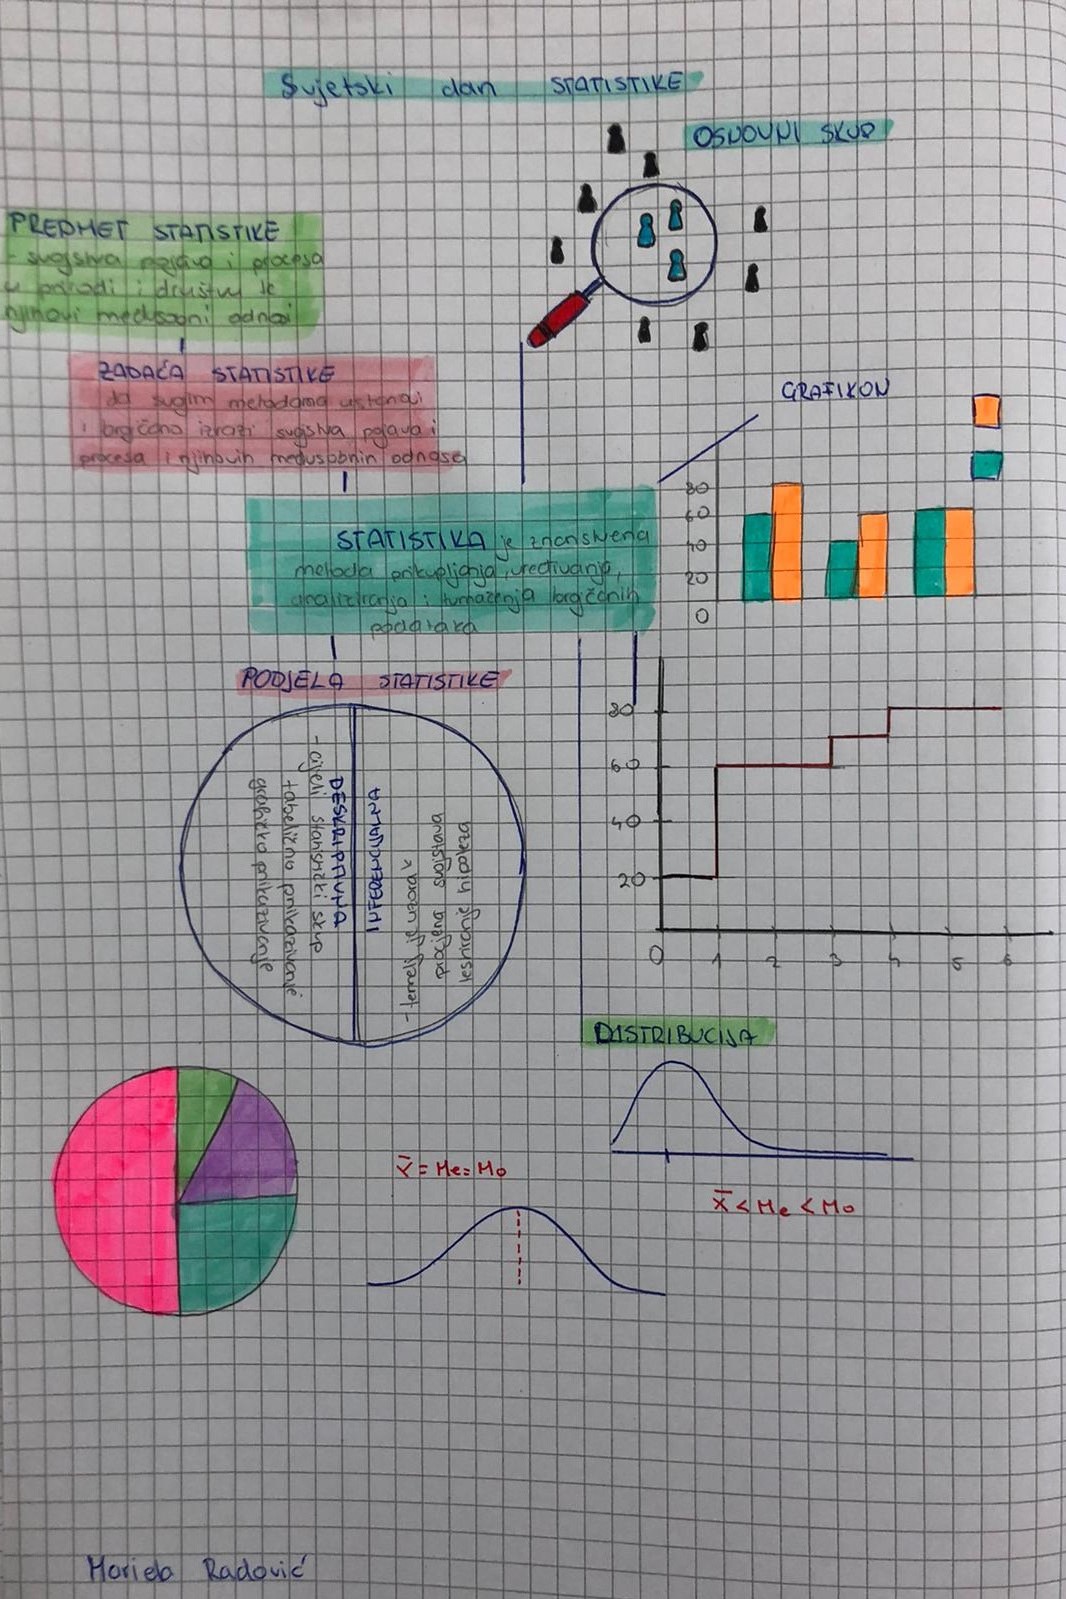 Svjetski dan STATISTIKE
OSNOVNI SKUP
PREDMET STATISTIKE
- svojstva pojava i procesa
u prirodi i društvu te
njihovi međusobni odnosi
ZADAĆA STATISTIKE
da svojim metodama ustanovi
i brojčano izrazi svojstva pojava i
procesa i njihovih međusobnih odnosa
GRAFIKON
80
60
40
20
0
STATISTIKA je znanstvena
metoda prikupljanja, uređivanja,
analiziranja i tumačenja brojčanih
podataka
PODJELA STATISTIKE
DESKRIPTIVNA
- cijeli statistički skup
tabelično prikazivanje
grafičko prikazivanje
INFERENCIJALNA
- temelj je uzorak
procjena svojstava
testiranje hipoteza
80
60
40
20
0 1 2 3 4 5 6
DISTRIBUCIJA
x̄ = Me = Mo
x̄ < Me < Mo
Mariela Radović